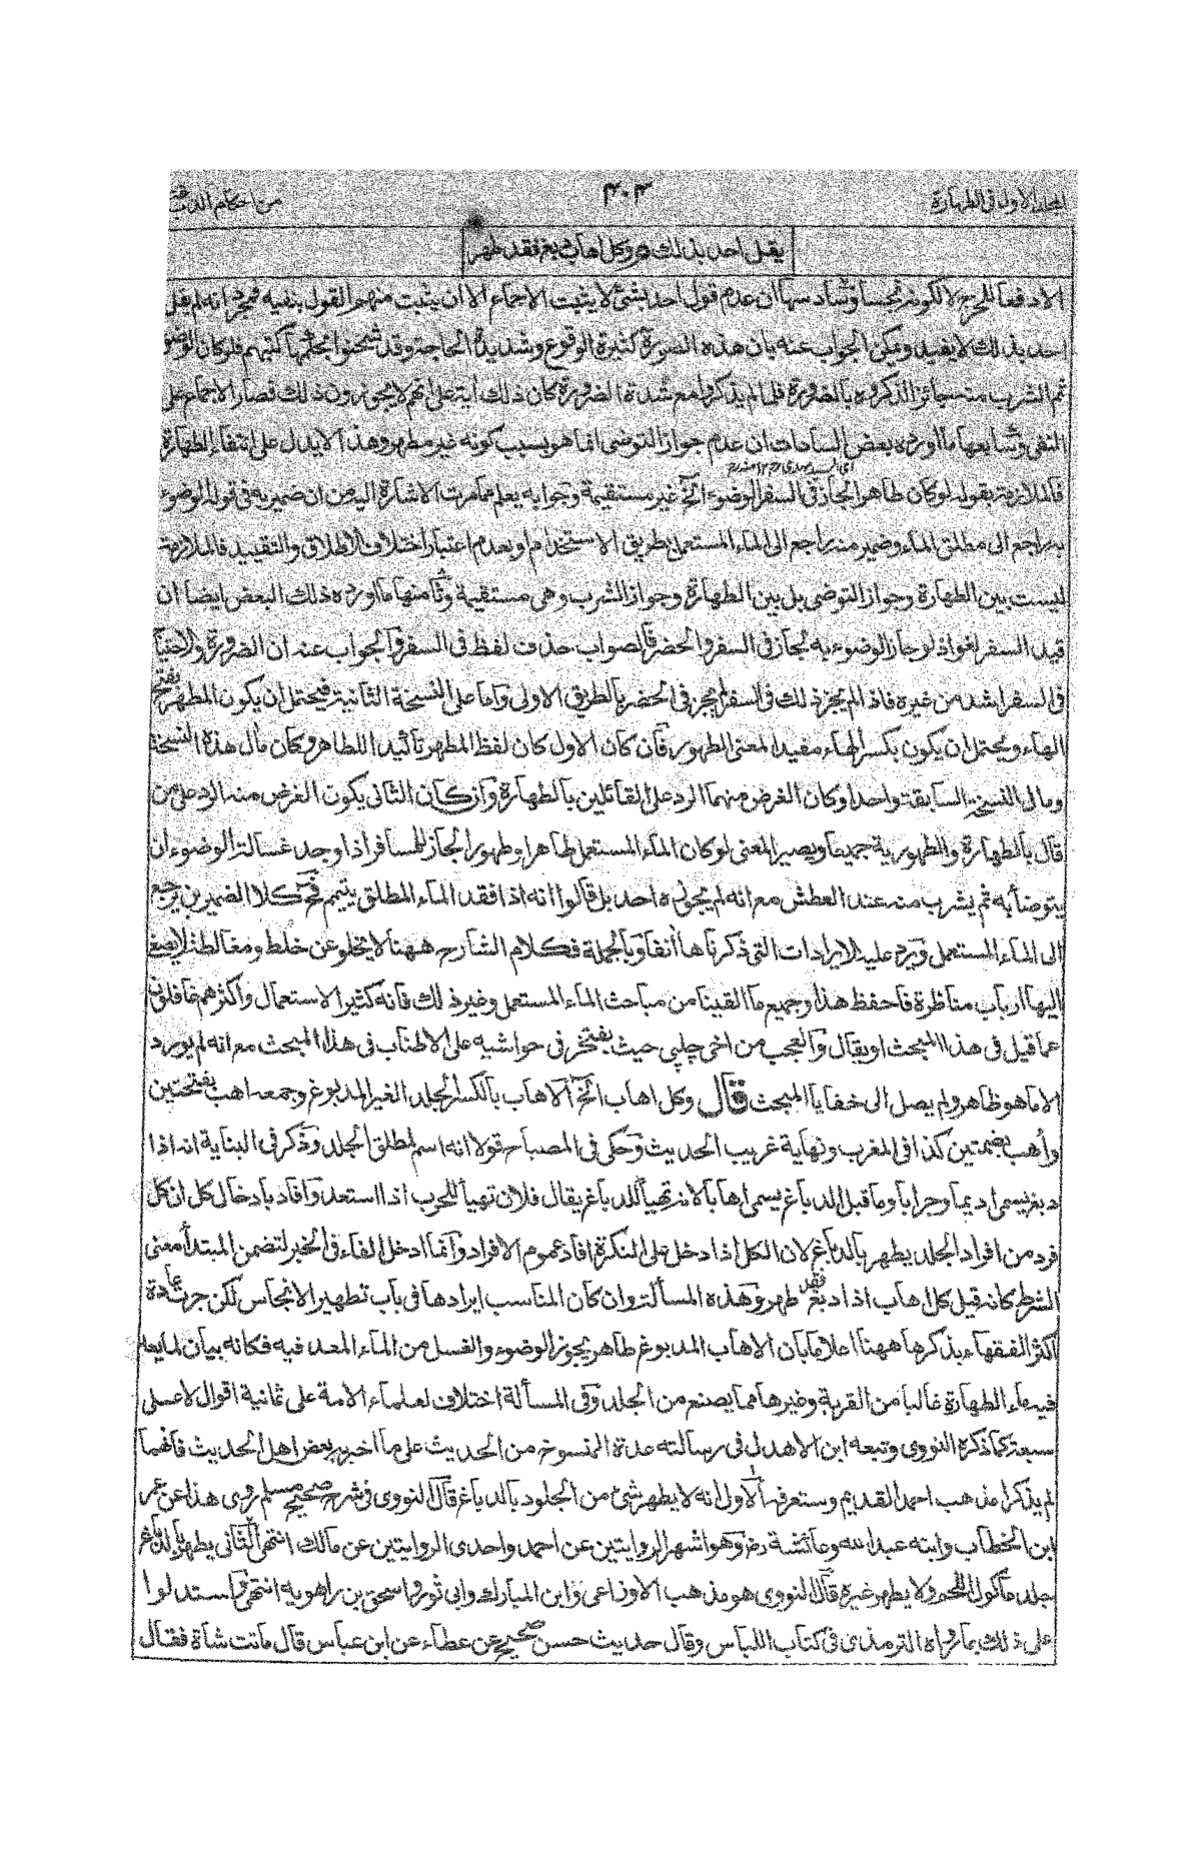 المجلد الاول فى الطهارة
۴۰۳
من احكام الدباغة
يقل احد بذلك ص وكل اهاب دبغ فقد طهر
الا دفعا للحرج لا لكونه نجسا وسادسها ان عدم قول احد بشئ لا يثبت الاجماع الا ان يثبت منهم القول بنفيه فمجرد انه لم يقل
احد بذلك لا يفيد ويمكن الجواب عنه بان هذه الصورة كثيرة الوقوع وشديدة الحاجة وقد شحنوا بحكمها كتبهم فلو كان الوضوء
ثم الشرب منه جائزا لذكروه بالضرورة فلما لم يذكروا مع شدة الضرورة كان ذلك آية على انهم لا يجوزون ذلك فصار الاجماع على
النفى وسابعها ما اورده بعض السادات ان عدم جواز التوضى انما هو بسبب كونه غير مطهر وهذا لا يدل على انتفاء الطهارة
فالملازمة بقوله لو كان طاهرا لجاز فى السفر الوضوء الخ غير مستقيمة وجوابه يعلم مما مرت الاشارة اليه من ان ضمير به فى قوله الوضوء
به راجع الى مطلق الماء وضمير منه راجع الى الماء المستعمل بطريق الاستخدام او بعدم اعتبار اختلاف الاطلاق والتقييد فالملازمة
ليست بين الطهارة وجواز التوضى بل بين الطهارة وجواز الشرب وهى مستقيمة وثامنها ما اورده ذلك البعض ايضا ان
قيد السفر لغو اذ لو جاز الوضوء به لجاز فى السفر والحضر فالصواب حذف لفظ فى السفر والجواب عنه ان الضرورة والاحتياج
فى السفر اشد من غيره فاذا لم يجز ذلك فى السفر لم يجز فى الحضر بالطريق الاولى واما على النسخة الثانية فيحتمل ان يكون المطهر بفتح
الهاء ويحتمل ان يكون بكسر الهاء مفيدا لمعنى الطهور فان كان الاول كان لفظ المطهر تأكيدا للطاهر وكان مآل هذه النسخة
ومآل النسخة السابقة واحدا وكان الغرض منهما الرد على القائلين بالطهارة وان كان الثانى يكون الغرض منه الرد على من
قال بالطهارة والطهورية جميعا ويصير المعنى لو كان الماء المستعمل طاهرا وطهورا لجاز للمسافر اذا وجد غسالة الوضوء ان
يتوضأ به ثم يشرب منه عند العطش مع انه لم يجوزه احد بل قالوا انه اذا فقد الماء المطلق يتيمم فح كلا الضميرين يرجع
الى الماء المستعمل ويرد عليه الايرادات التى ذكرناها آنفا وبالجملة فكلام الشارح ههنا لا يخلو عن خلط ومغالطة لا يصغى
اليها ارباب مناظرة فاحفظ هذا وجميع ما القينا من مباحث الماء المستعمل وغير ذلك فانه كثير الاستعمال واكثرهم غافلون
عما قيل فى هذا المبحث او يقال والعجب من اخى چلپى حيث يفتخر فى حواشيه على الاطناب فى هذا المبحث مع انه لم يورد
الا ما هو ظاهر ولم يصل الى خفايا المبحث قال وكل اهاب الخ الاهاب بالكسر الجلد الغير المدبوغ وجمعه اهب بفتحتين
وأهب بضمتين كذا فى المغرب ونهاية غريب الحديث وحكى فى المصباح قولا انه اسم لمطلق الجلد وذكر فى البناية انه اذا
دبغ يسمى اديما وجرابا وما قبل الدباغ يسمى اهابا لانه تهيأ للدباغ يقال فلان تهيأ للحرب اذا استعد وافاد بادخال كل ان كل
فرد من افراد الجلد يطهر بالدباغ لان الكل اذا دخل على النكرة افاد عموم الافراد وانما ادخل الفاء فى الخبر لتضمن المبتدأ معنى
الشرط كانه قيل كل اهاب اذا دبغ فقد طهر وهذه المسألة وان كان المناسب ايرادها فى باب تطهير الانجاس لكن جرت عادة
اكثر الفقهاء بذكرها ههنا اعلاما بان الاهاب المدبوغ طاهر يجوز الوضوء والغسل من الماء المعد فيه فكانه بيان لما يعد
فيه ماء الطهارة غالبا من القربة وغيرها مما يصنع من الجلد وفى المسألة اختلاف لعلماء الامة على ثمانية اقوال لا على
سبعة كما ذكره النووى وتبعه ابن الاهدل فى رسالته عدة المنسوخ من الحديث على ما اخبر به بعض اهل الحديث فانهما
لم يذكرا مذهب احمد القديم وستعرفه الاول انه لا يطهر شئ من الجلود بالدباغ قال النووى فى شرح صحيح مسلم روى هذا عن عمر
ابن الخطاب وابنه عبد الله وعائشة رض وهو اشهر الروايتين عن احمد واحدى الروايتين عن مالك انتهى الثانى يطهر بالدباغ
جلد مأكول اللحم ولا يطهر غيره قال النووى هو مذهب الاوزاعى وابن المبارك وابى ثور واسحق بن راهويه انتهى واستدلوا
على ذلك بما رواه الترمذى فى كتاب اللباس وقال حديث حسن صحيح عن عطاء عن ابن عباس قال ماتت شاة فقال